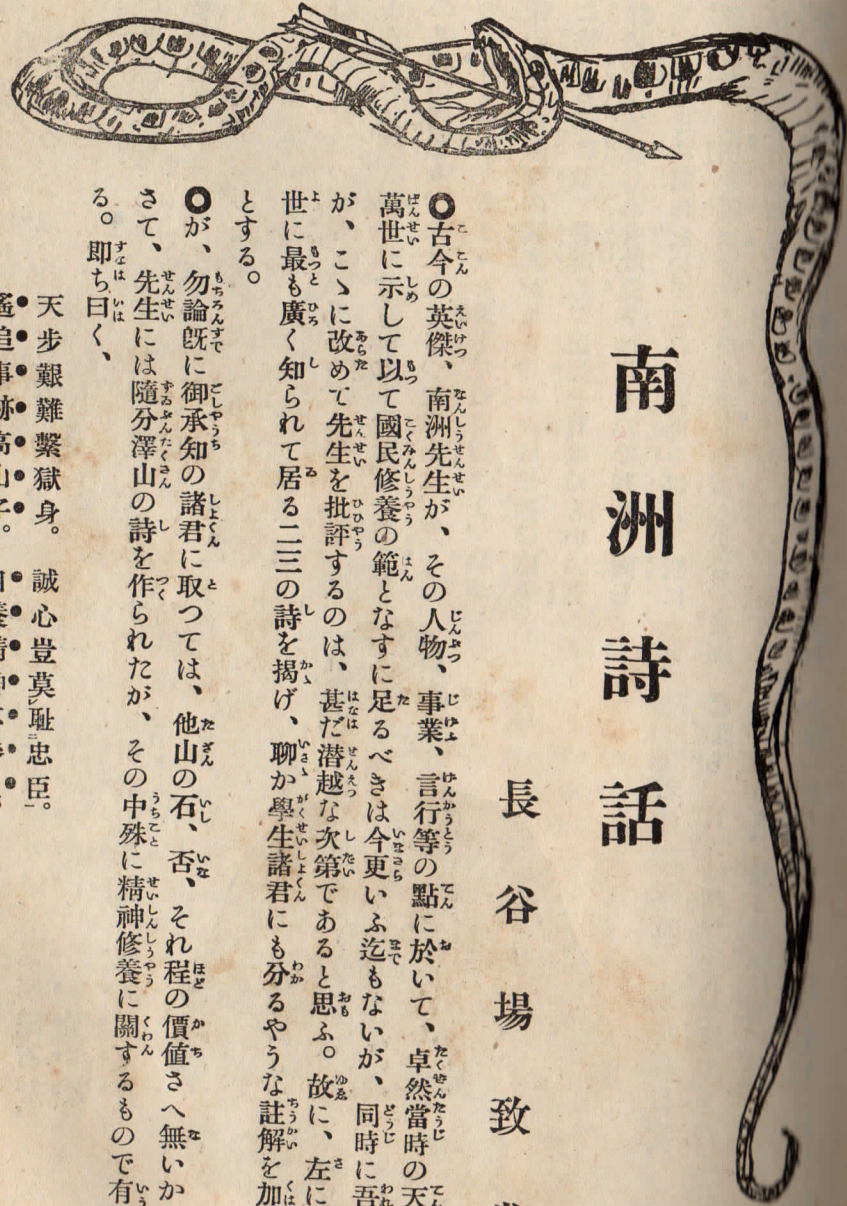 南洲詩話
長谷場致
◎古今の英傑、南洲先生が、その人物、事業、言行等の點に於いて、卓然當時の天
萬世に示して以て國民修養の範となすに足るべきは今更いふ迄もないが、同時に吾
が、こゝに改めて先生を批評するのは、甚だ潜越な次第であると思ふ。故に、左に
世に最も廣く知られて居る二三の詩を揭げ、聊か學生諸君にも分るやうな註解を加
とする。
◎が、勿論既に御承知の諸君に取つては、他山の石、否、それ程の價値さへ無いか
さて、先生には隨分澤山の詩を作られたが、その中殊に精神修養に關するもので有
る。卽ち曰く、
天步艱難繫獄身。誠心豈莫耻忠臣。
遙追事跡高山子。